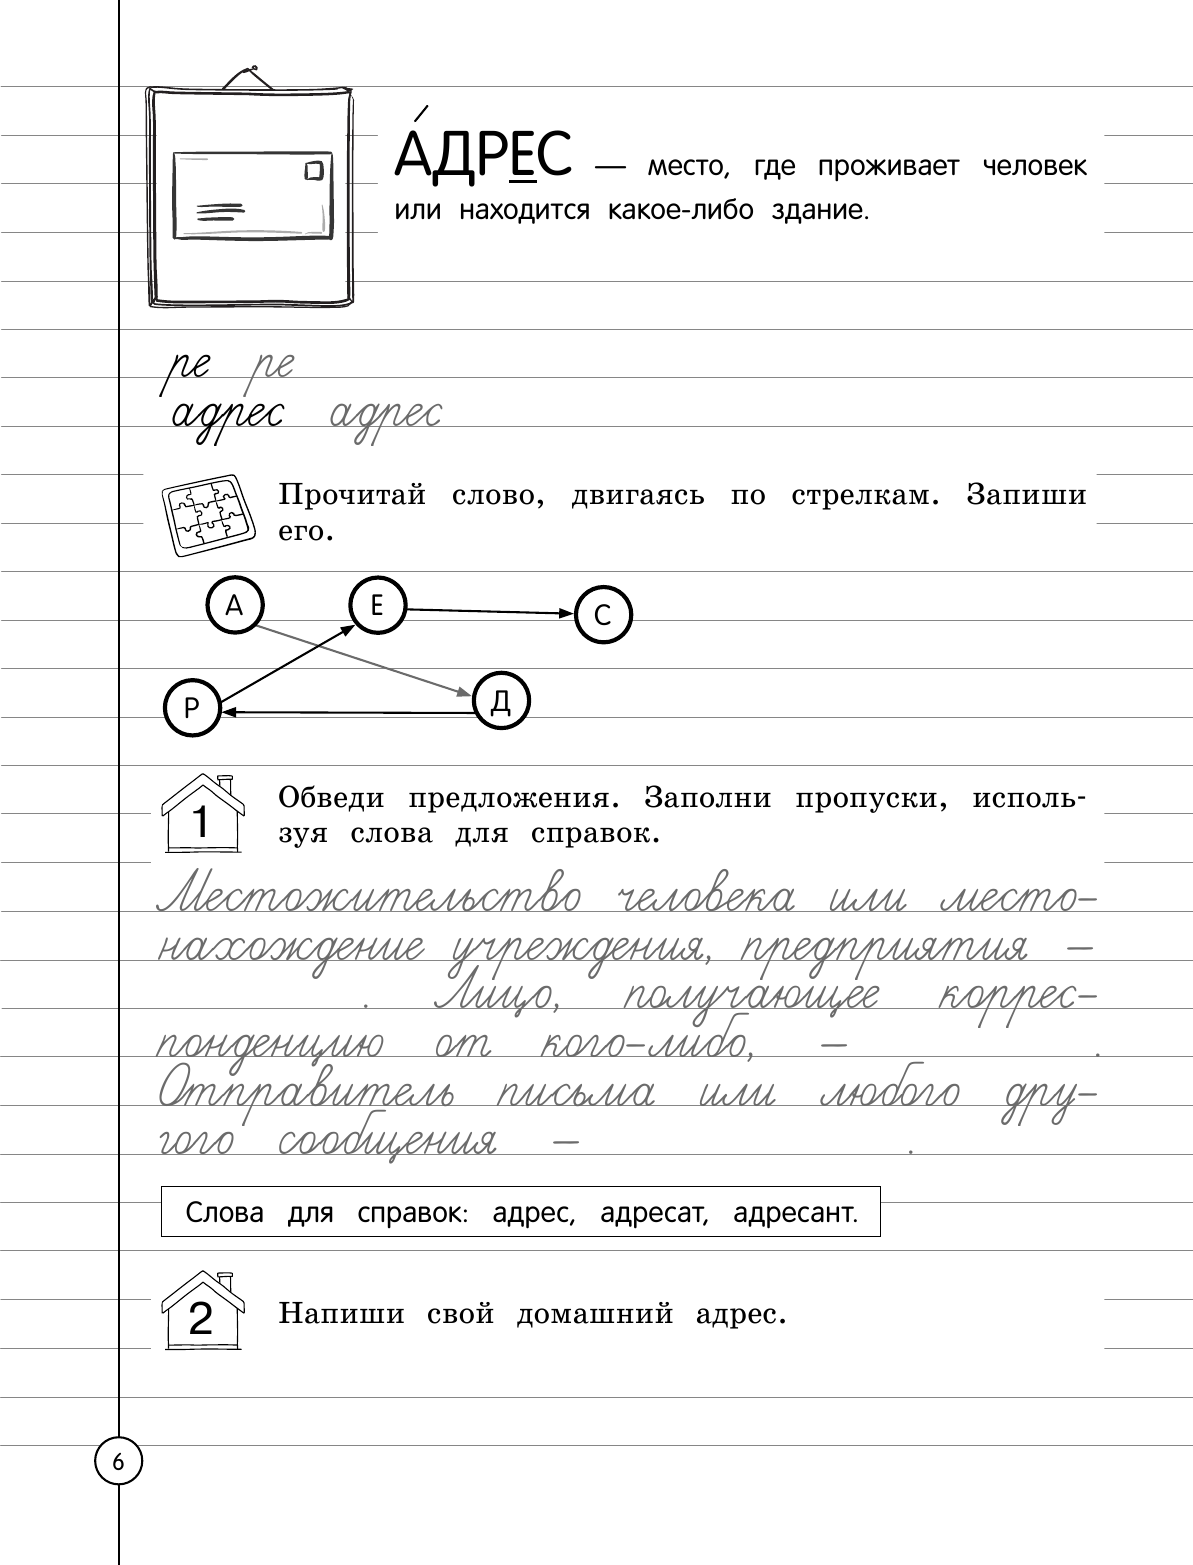 А́ДРЕС — место, где проживает человек
или находится какое-либо здание.
ре ре
адрес адрес
Прочитай слово, двигаясь по стрелкам. Запиши
его.
А Е С
Р Д
1 Обведи предложения. Заполни пропуски, исполь-
зуя слова для справок.
Местожительство человека или место-
нахождение учреждения, предприятия —
. Лицо, получающее коррес-
понденцию от кого-либо, — .
Отправитель письма или любого дру-
гого сообщения — .
Слова для справок: адрес, адресат, адресант.
2 Напиши свой домашний адрес.
6